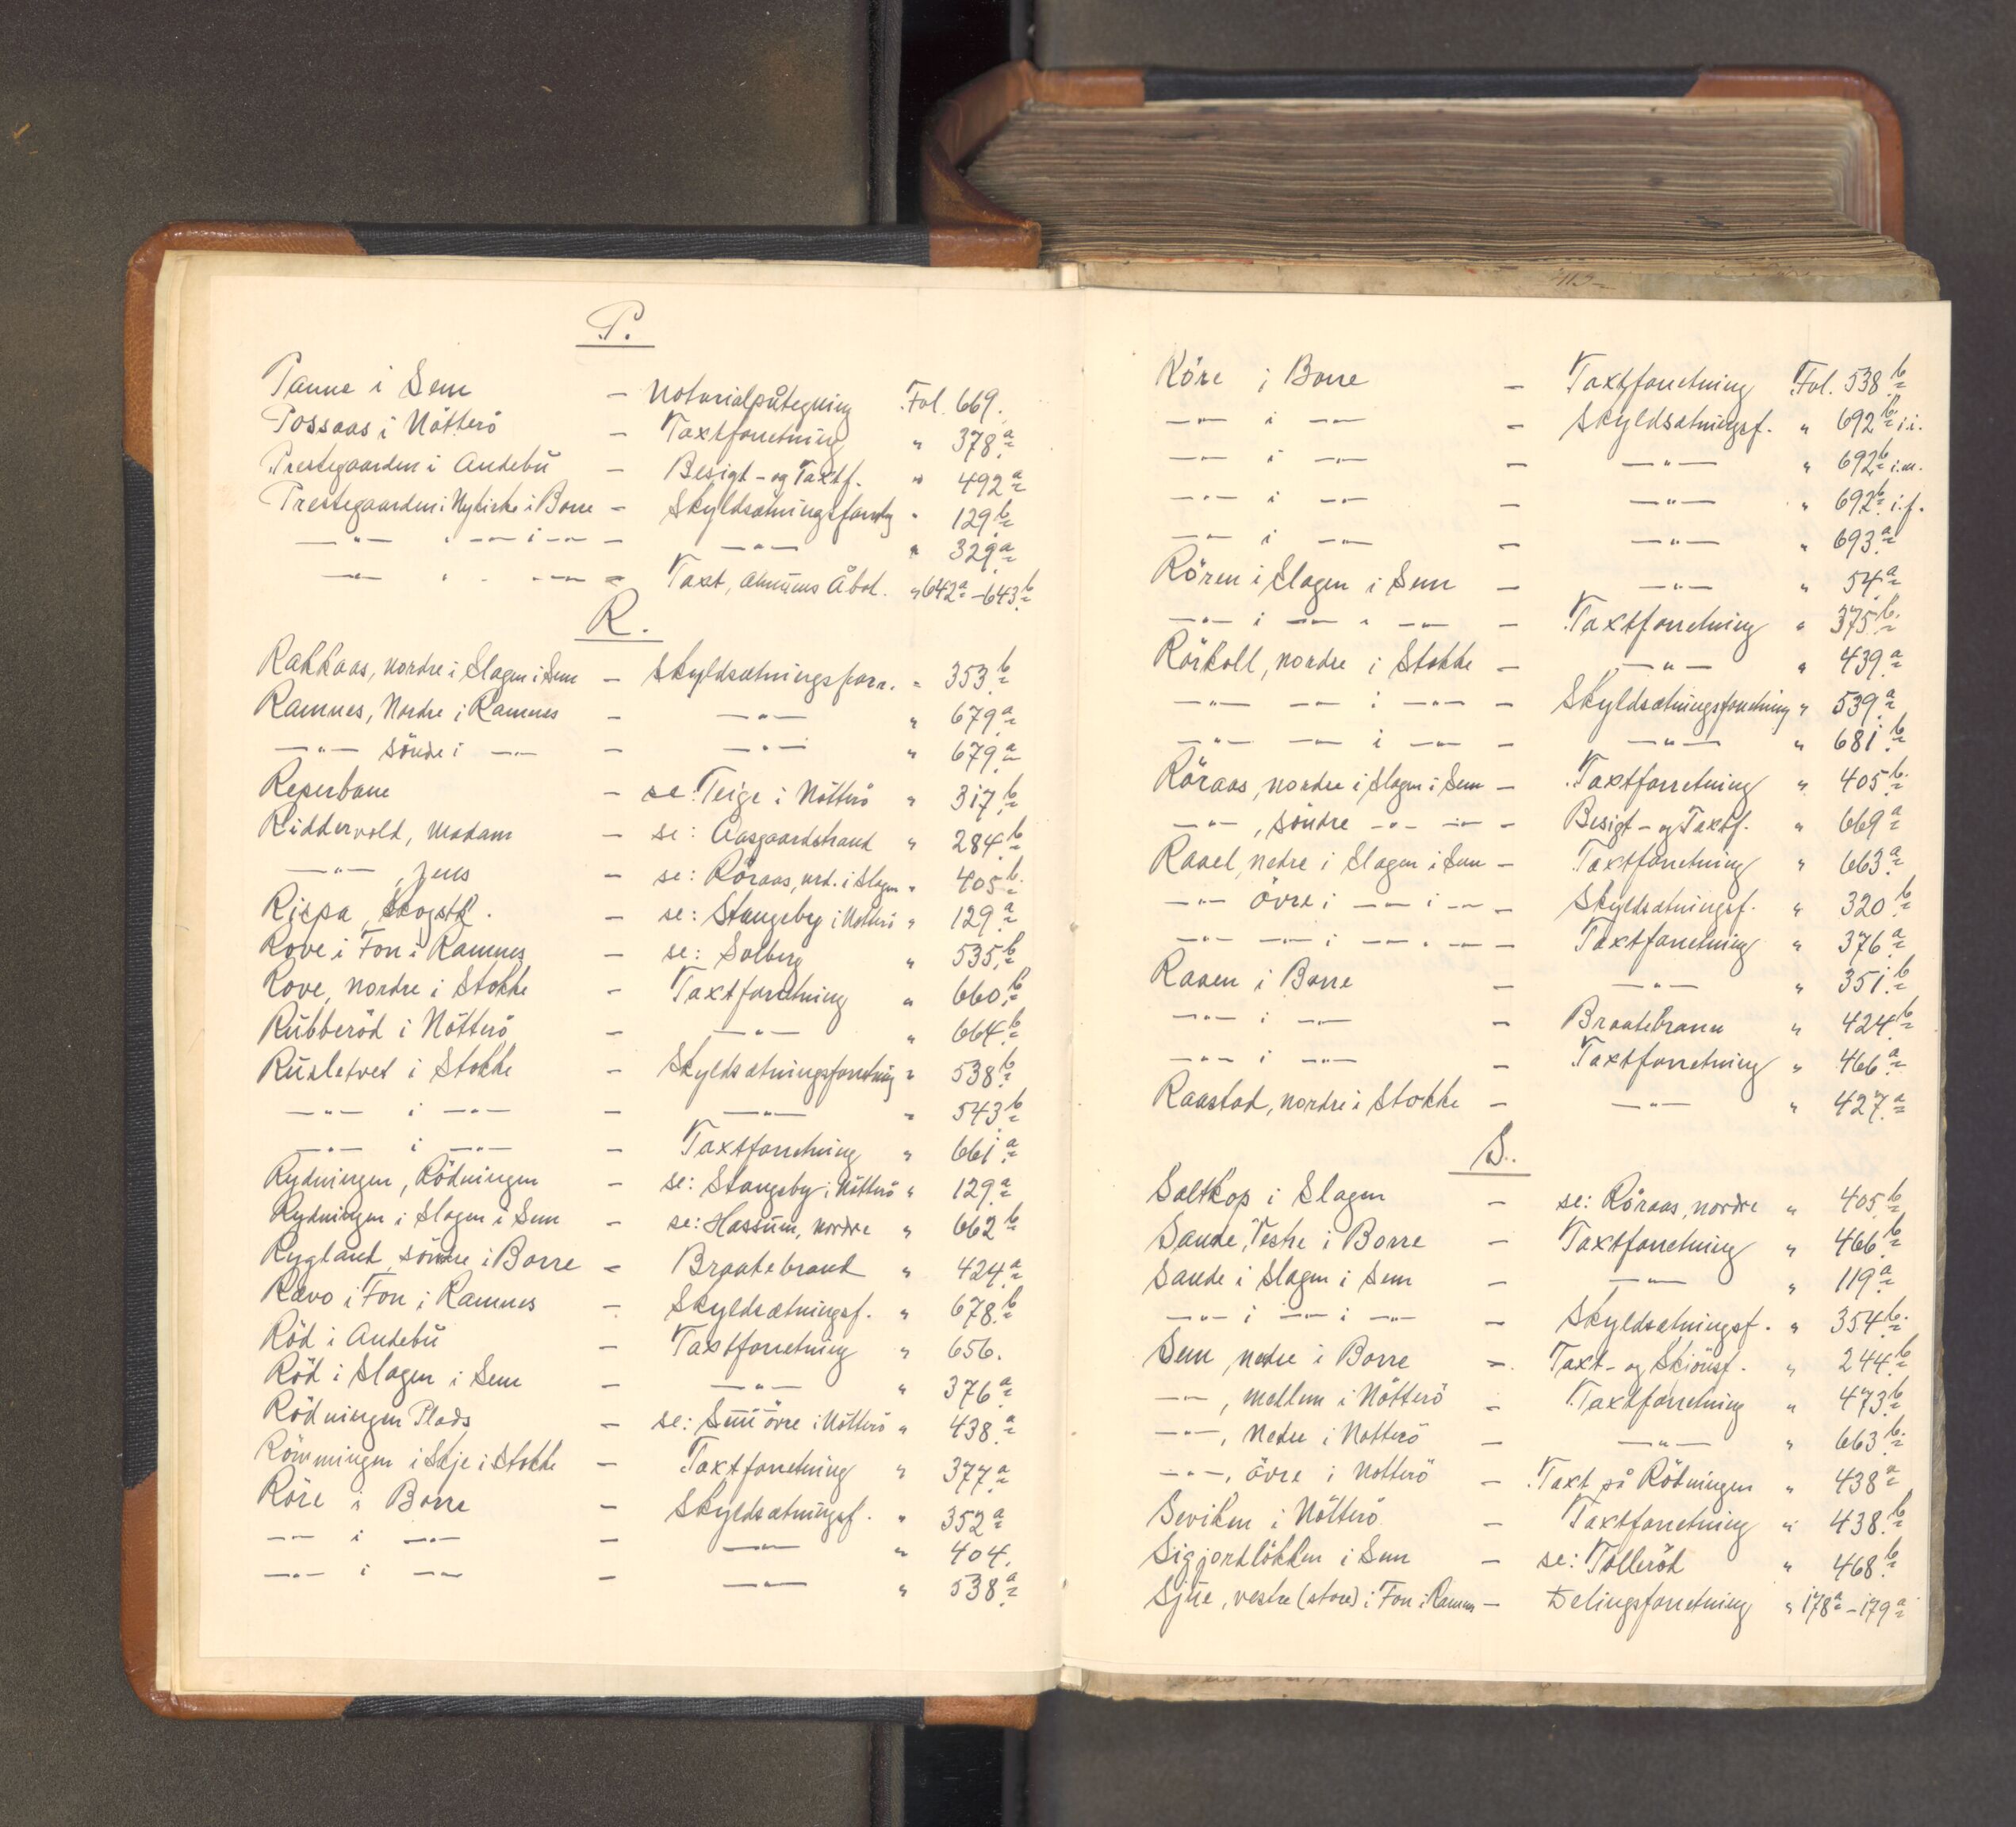 P.
Panne i Sem — Notarialpåtegning Fol. 669.
Possaas i Nötterö — Taxtforretning " 378.a
Prestegaarden i Andebŭ — Besigt- og Taxtf. " 492a
Prestegaarden i Nykirke i Borre — Skyldsætningsforrtg " 129.b
—"— " —"— i —"— — —"— " 329.a
—"— " - —"— — Taxt, Åbod. " 642a-643.b
R.
Rakkaas, nordre i Slagen i Sem — Skyldsætningsforr. " 353.b
Ramnes, Nordre i Ramnes — —"— " 679.a
—"— söndre i —"— — —"— " 679.a
Reperbane — se: Teige i Nötterö " 317.b
Riddervold, Madam — se: Aasgaardstrand " 284.b
—"— , Jens — se: Röraas, nrd. i Slagen " 405.b
Rispa, . — se: Stangeby i Nötterö " 129.a
Rove i Fon i Ramnes — se: Solberg " 535.b
Rove, nordre i Stokke — Taxtforretning " 660.b
Rŭbberöd i Nötterö — —"— " 664.b
Rŭsletvet i Stokke — Skyldsætningsforretning " 538.b
—"— i —"— — —"— " 543.b
—"— i —"— — Taxtforretning " 661.a
Rydningen, Rödningen — se: Stangeby i Nötterö " 129.a
Rydningen i Slagen i Sem — se: Hassŭm, nordre " 662b
Rygland, söndre i Borre — Braatebrand " 424.a
Rævo i Fon i Ramnes — Skyldsætningsf. " 678.b
Röd i Andebŭ — Taxtforretning " 656.
Röd i Slagen i Sem — —"— " 376.a
Rödningen Plads — se: Sem övre i Nötterö " 438.a
Römmingen i Skje i Stokke — Taxtforretning " 377.a
Röre i Borre — Skyldsætningsf. " 352a
—"— i —"— — —"— " 404.
—"— i —"— — —"— " 538.a
Röre i Borre — Taxtforretning Fol. 538b
—"— i —"— — Skyldsætningsf. " 692b i.i.
—"— i —"— — —"— " 692b i.m.
—"— i —"— — —"— " 692b i.f.
—"— i —"— — —"— " 693.a
Rören i Slagen i Sem — —"— " 54.a
—"— i —"— " —"— — Taxtforretning " 375.b
Rörkoll, nordre i Stokke — —"— " 439.a
—"— —"— i —"— — Skyldsætningsforretning " 539.a
—"— —"— i —"— — —"— " 681.b
Röraas, nordre i Slagen i Sem — Taxtforretning " 405.b
—"— , söndre -"- —"— — Besigt- og Taxtf. " 669a
Raael, nedre i Slagen i Sem — Taxtforretning " 663.a
—"— övre i —"— i —"— — Skyldsætningsf. " 320.b
—"— —"— i —"— " —"— — Taxtforretning " 376.a
Raaen i Borre — —"— " 351.b
—"— i —"— — Braatebrann " 424.b
—"— i —"— — Taxtforretning " 466.a
Raastad, nordre i Stokke — —"— " 427.a
S.
Saltkop i Slagen — se: Röraas, nordre " 405.b
Sande, Vestre i Borre — Taxtforretning " 466.b
Sande i Slagen i Sem — —"— " 119.a
—"— i —"— i —"— — Skyldsætningsf. " 354.b
Sem, nedre i Borre — Taxt- og Skiönsf. " 244.b
—"— , mellem i Nötterö — Taxtforretning " 473.b
—"—, Nedre i Nötterö — —"— " 663.b
—"—, övre i Nötterö — Taxt på Rödningen " 438a
Seviken i Nötterö — Taxtforretning " 438.b
Sigjordlökken i Sem — se: Tolleröd " 468.b
Sjue, vestre (store) i Fon i Ramnes — Delingsforretning " 178a-179a